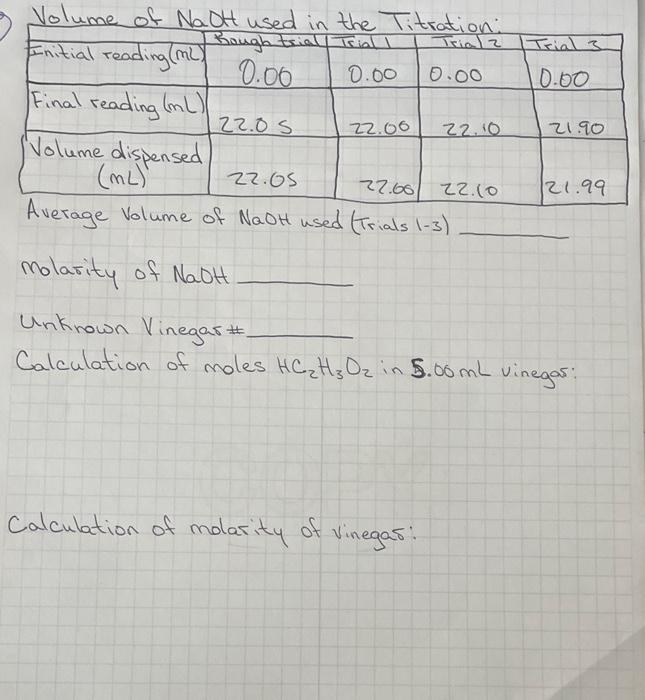 Volume of NaOH used in the Titration:
Rough trial Trial 1 Trial 2 Trial 3
Initial reading (mL) 0.00 0.00 0.00 0.00
Final reading (mL) 22.05 22.00 22.10 21.90
Volume dispensed
(mL) 22.05 22.00 22.10 21.99
Average Volume of NaOH used (Trials 1-3)
Molarity of NaOH
Unknown Vinegar #
Calculation of moles HC₂H₃O₂ in 5.00 mL vinegar:
Calculation of molarity of vinegar: